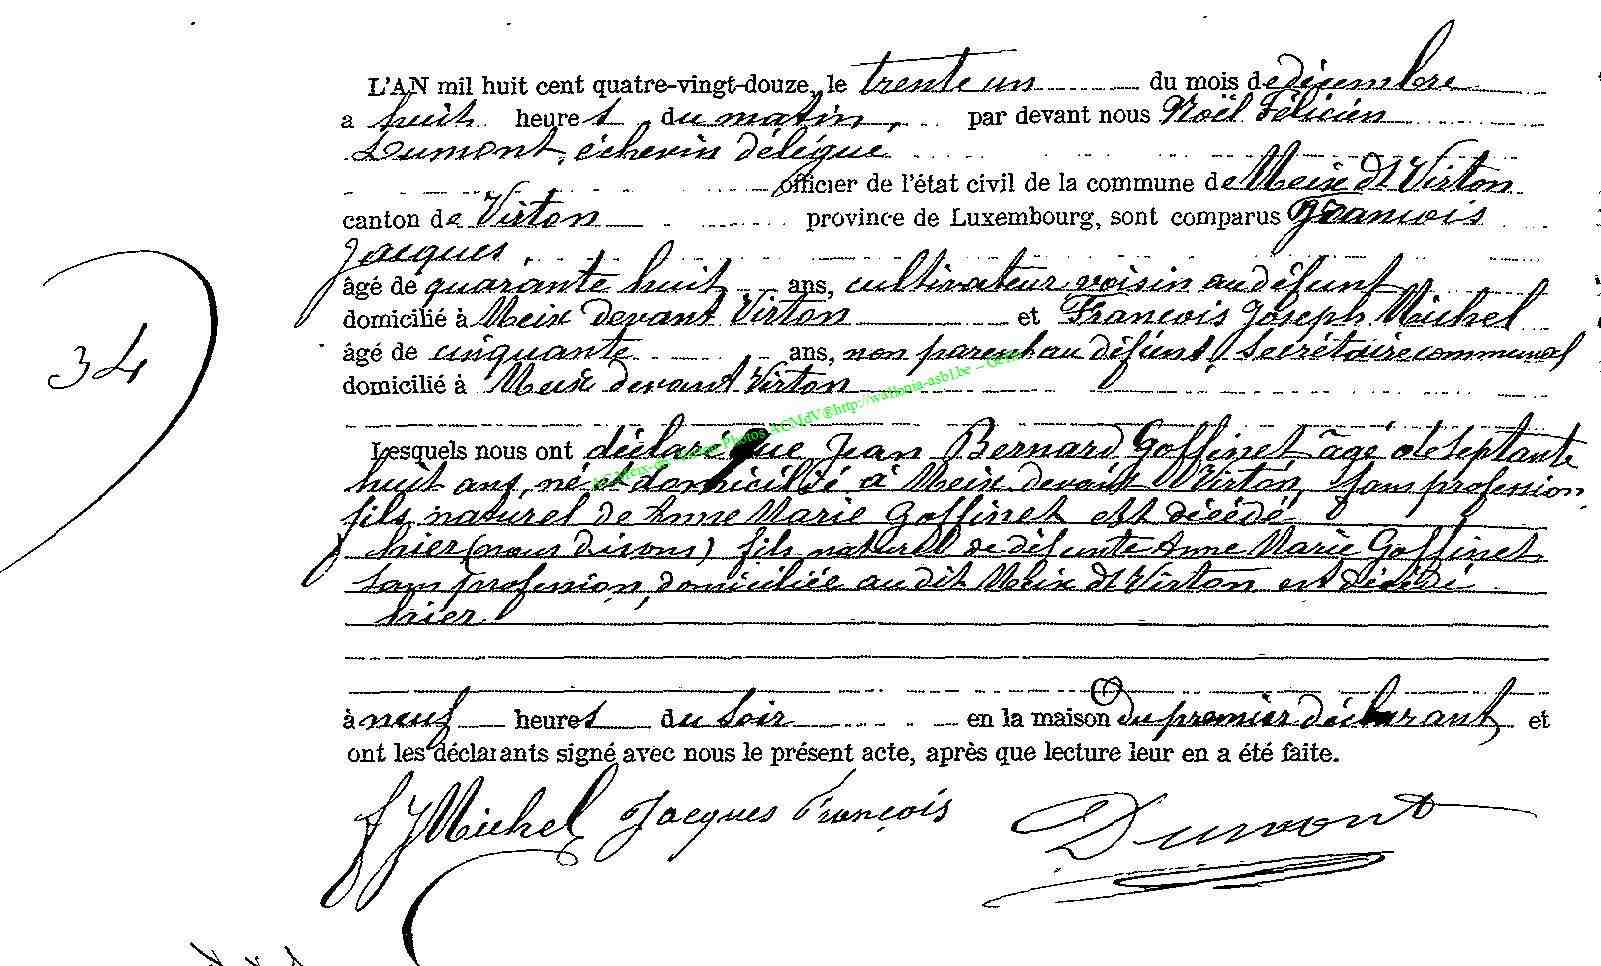 L'AN mil huit cent quatre-vingt-douze, le trente un du mois de décembre
a huit heures du matin, par devant nous Noël Félicien
Dumont, échevin délégué
officier de l'état civil de la commune de Meix dt Virton
canton de Virton province de Luxembourg, sont comparus François
Jacques,
âgé de quarante huit ans, cultivateur voisin au défunt
domicilié à Meix devant Virton et François Joseph Michel
34
âgé de cinquante ans, non parent au défunt, secrétaire communal
domicilié à Meix devant Virton
Photos ACMdV@http://wallonia-asbl.be –
Lesquels nous ont déclaré que Jean Bernard Goffinet âgé de septante
huit ans, né et domicilié à Meix devant Virton, sans profession
fils naturel de Anne Marie Goffinet est décédé
hier (nous disons) fils naturel de défunte Anne Marie Goffinet
sans profession, domiciliée au dit Meix dt Virton est décédé
hier
à neuf heures du soir en la maison du premier déclarant, et
ont les déclarants signé avec nous le présent acte, après que lecture leur en a été faite.
f J Michel Jacques François Dumont